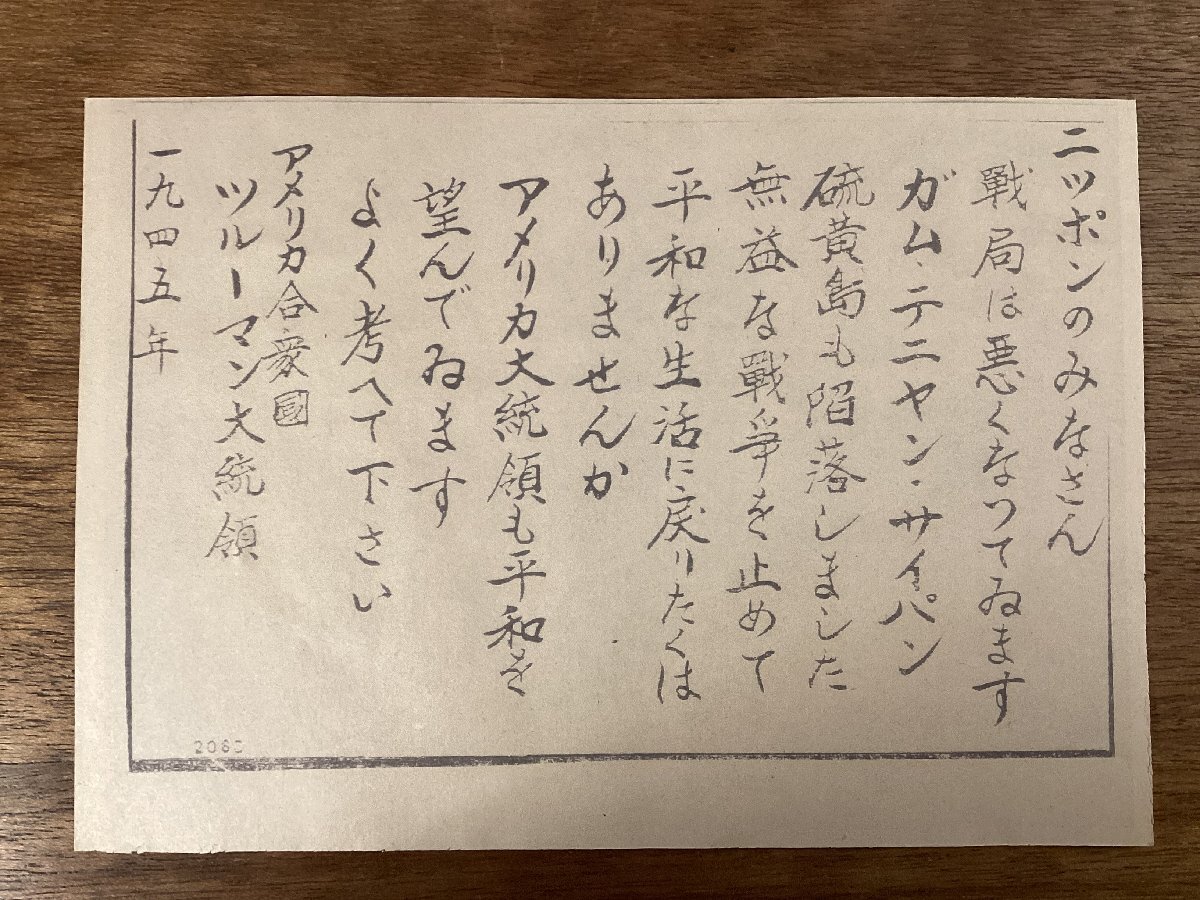 ニッポンのみなさん
戰局は悪くなつてゐます
ガム・テニヤン・サイパン
硫黄島も陥落しました
無益な戰爭を止めて
平和な生活に戻りたくは
ありませんか
アメリカ大統領も平和を
望んでゐます
よく考へて下さい
アメリカ合衆國
ツルーマン大統領
一九四五年